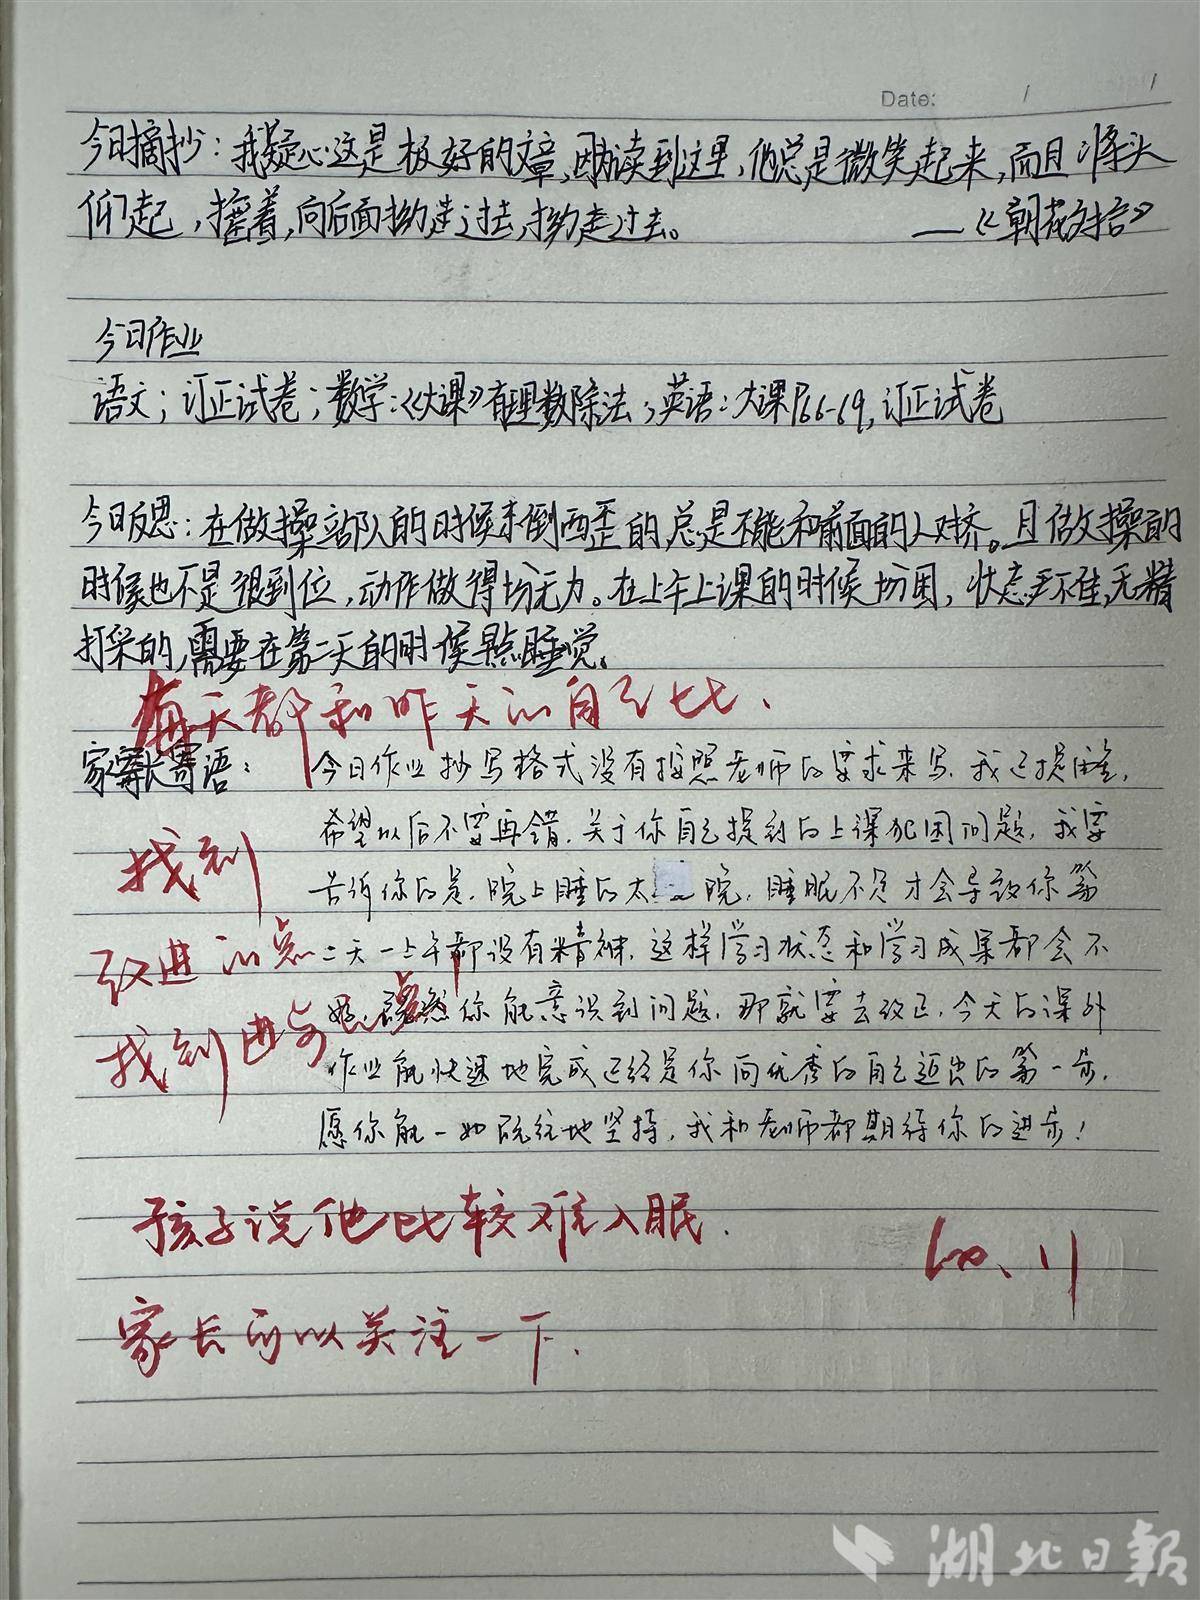 Date: / /
今日摘抄：我疑心这是极好的文章,因为读到这里,他总是微笑起来,而且将头
仰起,摇着,向后面拗过去,拗过去。 —《朝花夕拾》
今日作业
语文；订正试卷；数学：《大课》有理数除法；英语：大课P66-69,订正试卷
今日反思：在做操站队的时候东倒西歪的总是不能和前面的人对齐。且做操的
时候也不是很到位,动作做得均无力。在上午上课的时候均困,状态不佳,无精
打采的,需要在第二天的时候早点睡觉。
每天都和昨天的自己比.
家长寄语： 今日作业抄写格式没有按照老师的要求来写,我已提醒,
希望以后不要再错.关于你自己提到的上课犯困问题,我要
找到
告诉你的是,晚上睡的太晚,睡眠不足才会导致你第
改进的点
二天一上午都没有精神,这样学习状态和学习成果都会不
好,既然你能意识到问题,那就要去改正,今天的课外
找到进步点
作业能快速地完成已经是你向优秀的自己迈出的第一步.
愿你能一如既往地坚持,我和老师都期待你的进步!
孩子说他比较难入眠.
家长可以关注一下.
湖北日报